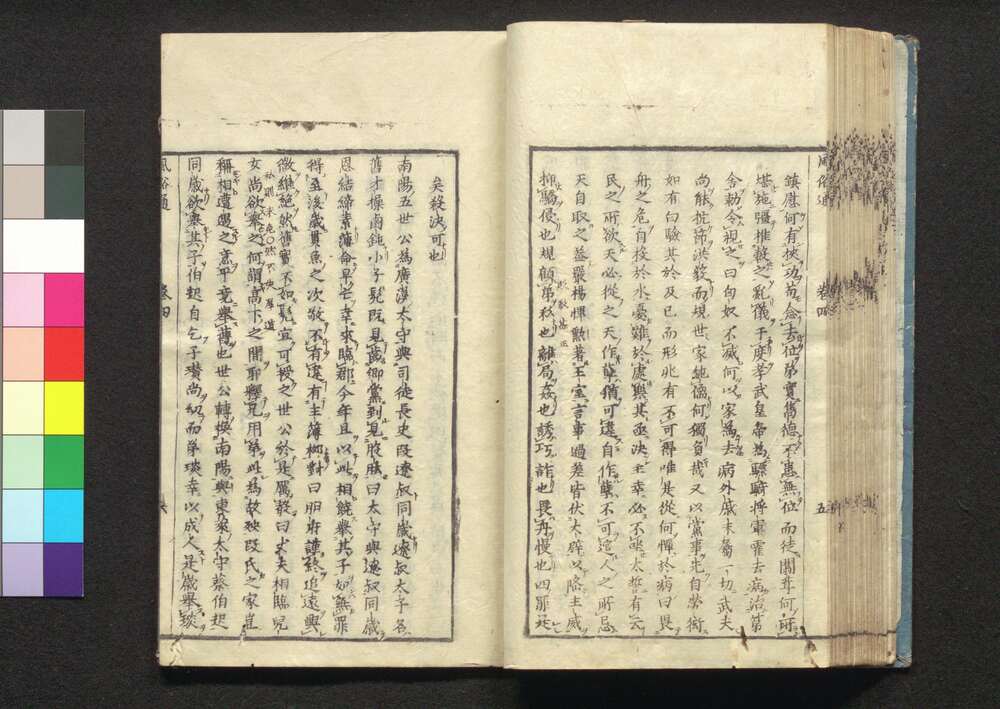 風俗通 卷四 五
鎮壓何有挾功苟念去位弟實薦德不患無位而徒闒茸何所
堪施彊推轂之亂儀干度孝武皇帝為驃騎將軍霍去病治第
舍勅令視之曰匈奴不滅何以家為去病外戚末屬一切武夫
尚能抗節洪毅而規世家純儒何獨負哉又以黨事先自劾衒
如有白驗其於及已而形兆有不可得唯是從何憚於病曰畏
舟之危自投於水憂難於處樂其亟決主幸必不坐太誓有云
民之所欲天必從之天作孽猶可違自作孽不可逭人之所忌
天自取之益聚楊惲勲著王室言事過差皆伏大辟以隆主威
抑驕侵也規顧弟私也離局姦也誘巧詐也畏再慢也四罪是
矣殺決可也
南陽五世公為廣漢太守與司徒長史段遼叔同歲遼叔太子名
舊才操鹵鈍小子髡既見齒鄉黨到見股肱曰太守與遼叔同歲
恩結締素薄命早亡幸來臨郡今年且以此相饒舉其子如無罪
得至後歲貫魚之次敬不有違有主簿柳對曰明府謹終追遠興
微繼絕然舊實不如髡宜可授之世公於是厲聲曰丈夫相臨兒
女尚欲舉之何謂高下之間耶釋兄用弟此為故殃段氏之家豈
稱相遺遇之意乎竟舉舊也世公轉換南陽與東萊太守蔡伯起
同歲欲舉其子伯起自乞子瓚尚幼而弟琰幸以成人是歲舉琰
風俗通 卷四 六